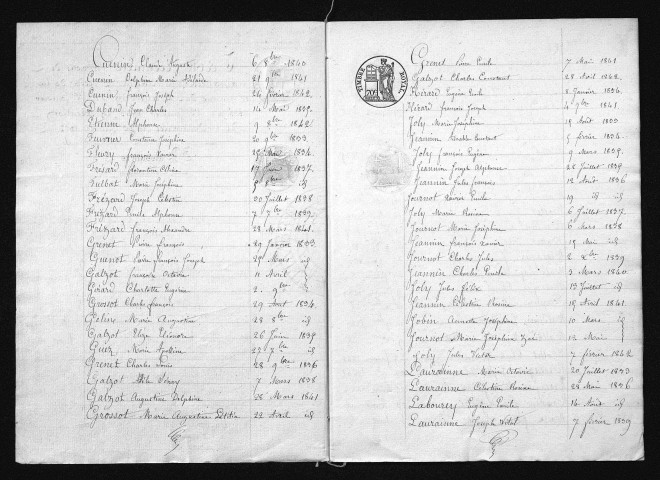 Cuenin Claude Auguste 6 8bre 1840
Cuenin Delphine Marie Adélaïde 21 9bre 1841
Cunin François Joseph 26 février 1842
Dubaud Jean Charles 14 Mai 1839
Etienne Alphonse 9 8bre 1842
Fauvrier Constantin Joséphine 20 9bre 1833
Fleury François Xavier 1834
Frésard Florentine 17 1837
Fulbat Marie Joséphine 8 8bre id
Frézard Joseph Célestin 30 Juillet 1838
Frézard Emile Alphonse 7 7bre 1839
Frézard François Alexandre 28 Mars 1841
Grenet Pierre François 29 Janvier 1833
Guenot Pierre François Joseph 29 Mars id
Galzot François Octavie 11 Août
Girard Charlotte Eugénie 2 9bre
Grossot Charles François 29 Août 1834
Marie Augustine 28 8bre id
Galzot Elize Eléonore 26 Juin 1835
Guez Marie Apolline 22 7bre id
Grenet Charles Louis 28 9bre 1836
Galzot Fanny 7 Mars 1838
Galzot Augustine Delphine 28 Mars 1841
Grossot Marie Augustine 22 Avril id
Grenet Emile 7 Mai 1841
TIMBRE ROYAL
Galzot Charles Constant 28 Mai 1842
Hérard Eugène Emile 8 Janvier 1834
Hérard François Joseph 4 9bre 1841
Joly Marie Joséphine 18 Août 1833
Jeannin Constant 5 février 1834
Joly François Eugène 9 Mars 1835
Jeannin Joseph Alphonse 28 Juillet 1835
Jeannin Jules François 12 Août 1836
Journot Xavier Emile 19 id id
Joly Marie Rosine 6 Juillet 1837
Journot Marie Joséphine 6 Mars 1838
Jeannin François Xavier 18 Mai id
Journot Charles Jules 2 Xbre 1839
Jeannin Charles Emile 3 Mars 1840
Joly Jules Félix 13 Juillet id
Jeannin Célestin Rosine 18 Avril 1841
Jobin Annette Joséphine 10 Mars id
Journot Marie Joséphine 12 Mai
Joly Jules Victor 7 février 1842
Lauraine Marie Octavie 20 Juillet 1833
Lauraine Célestin Rosine 28 Mai 1836
Labourey Eugène Emile 16 Août id
Lauraine Joseph Vital 7 février 1839